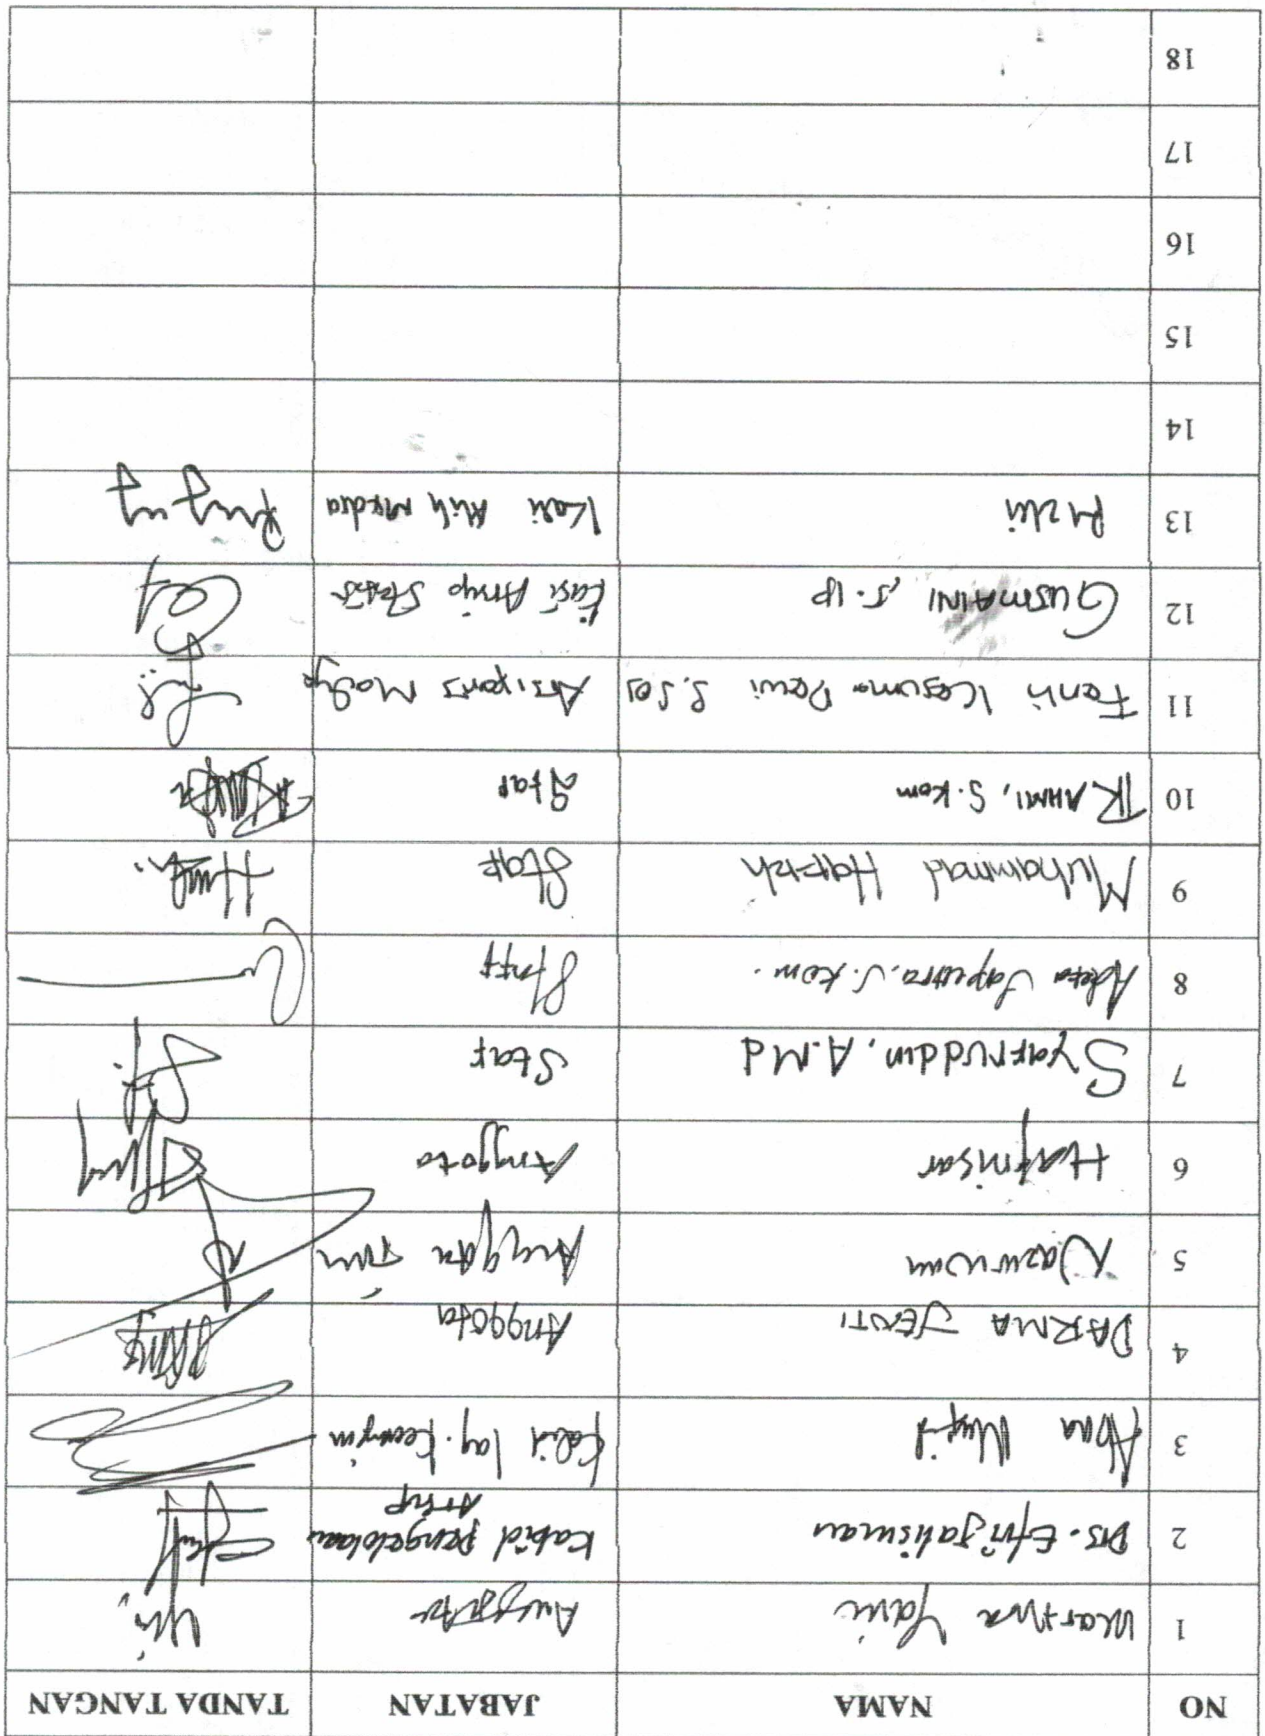 NO NAMA JABATAN TANDA TANGAN
1 Marfina Yani Anggota
2 Drs. Efrizalisman Kabid Pengelolaan
Arsip
3 Kabid lay.
4 DARMA JENTI Anggota
5 Nazwwan Anggota Tim
6 Hafnisar Anggota
7 Syafruddin, A.Md Staf
8 Saputra. S.Kom. Staff
9 Muhammad Hafizh Staf
10 RAHMI, S.Kom Staf
11 Fenti Kesuma Dewi S.Sos Arsiparis Madya
12 GUSMAINI, S.IP Kasi Arsip Statis
13 Rizki Kasi Media
14
15
16
17
18